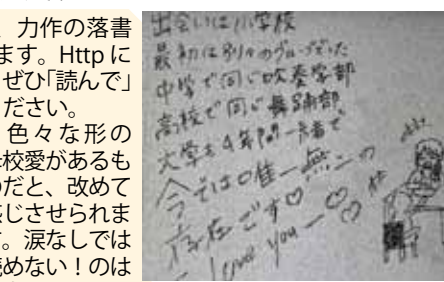 、力作の落書
ます。Httpに
ぜひ「読んで」
ださい。
色々な形の
校愛があるも
のだと、改めて
感じさせられま
す。涙なしでは
読めない！のは
出会いは小学校
最初は別々のグループだった
中学で同じ吹奏学部
高校で同じ舞踊部
大学も4年間一緒で
今では唯一無二の
存在です♡
I love you ー♡♡